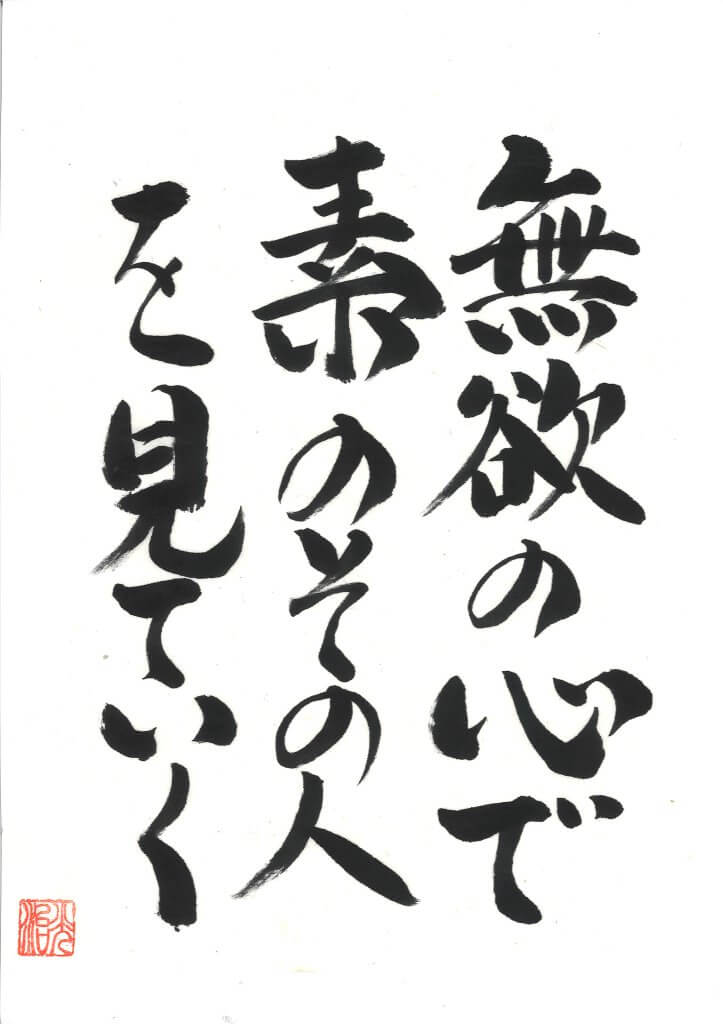 無欲の心で
素のその人
を見ていく